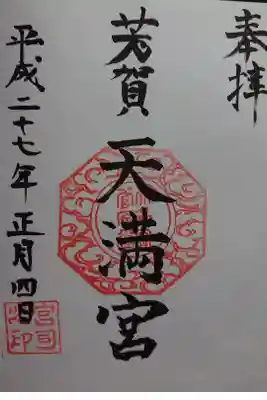 奉拝
芳賀天満宮
平成二十七年正月四日
宮司之印